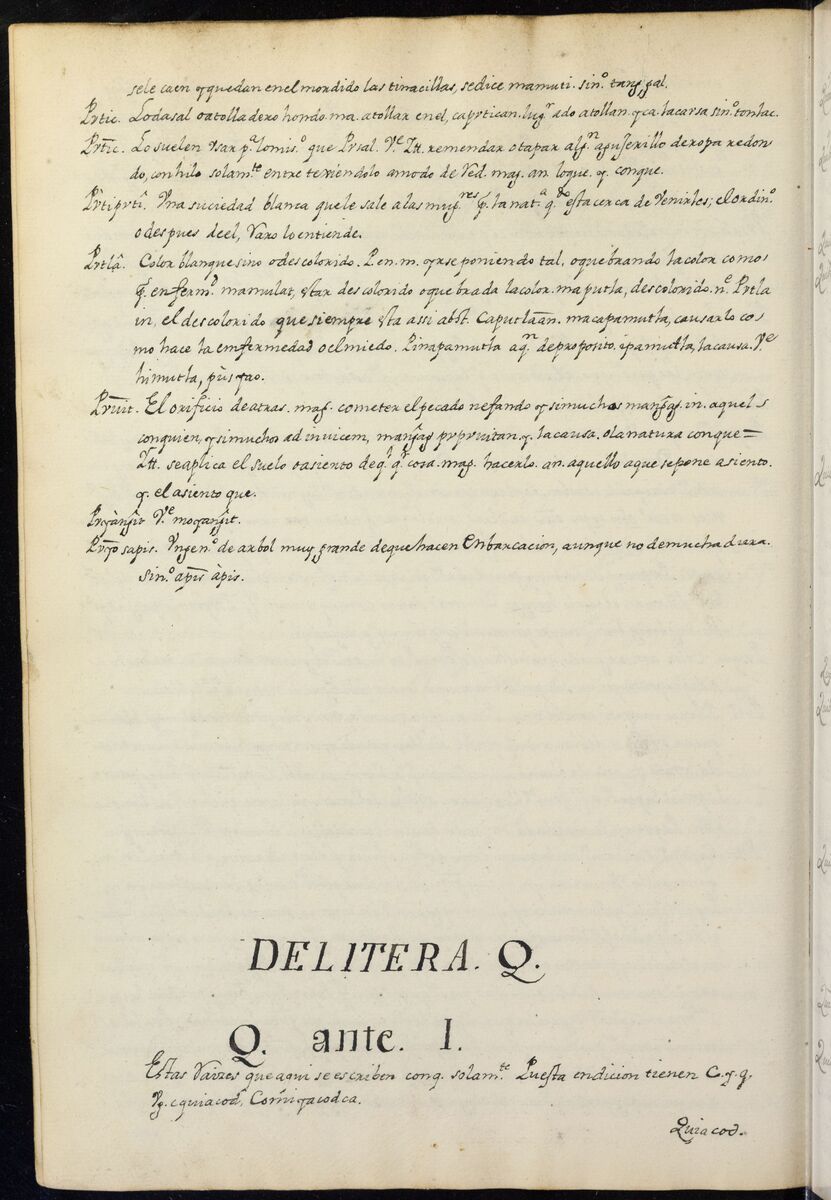 sele caen y quedan en el mordido las tinacillas, sedice mamuti. sin.º tang̃gal.
Pr̃tic. Lodasal o atolladero hondo. ma. atollar en el, caprtican. lug.r ado atollan. y. ca. la carsa sin.º tonlac.
Pr̃tic. Lo suelen vsar p.a lo mis.º que Prsal. V.e Itt. remendar o tapar alg.n agujerillo de ropa redon
do, con hilo solam.te entre texiendolo a modo de Ved. mag. an. lo que. y. conque.
Pr̃tiprtî. Vna suciedad blanca que le sale a las mug.res p.r la nat.a q.do està cerca de venirles; el ordin.º
o despues de el, Varo lo entiende.
Prtlâ. Color blanquesino o descolorido. P. en. m. yrse poniendo tal, o quebrando la color como
q.l enferm.º mamutlat, estar descolorido o quebrada la color. maputla, descolorido. n.e Prtla
in, el descolorido que siempre està assi abst. caputlaan. macapamutla, causarlo co-
mo hace la emfermedad o el miedo. Pinapamutla aq.n de proposito. ipamutla, la causa. V.e
himutla, pùs̃gao.
Prruit. El orificio de atras. mag. cometer el pecado nefando y si muchos mang̃ag. in. aquel
conquien, y si muchos ad invicem, mang̃ag prprruitan. y. la causa. o la natura con que =
Itt. se aplica el suelo o asiento de q.l q.r cosa. mag. hacerlo. an. aquello aque se pone asiento.
y. el asiento que.
Progàng̃it V.e mogang̃it.
Prg̃o sapis. Vn gen.º de arbol muy grande de que hacen Enbarcacion, aunque no de mucha dura.
sin.º apìs àpis.
DE LITERA. Q.
Q. ante. I.
Estas Vaizes que aqui se escriben con q. solam.te Puesta en dicion tienen C. y q.
Vg. cquiacod, Comĩgacodca.
Quiacod.